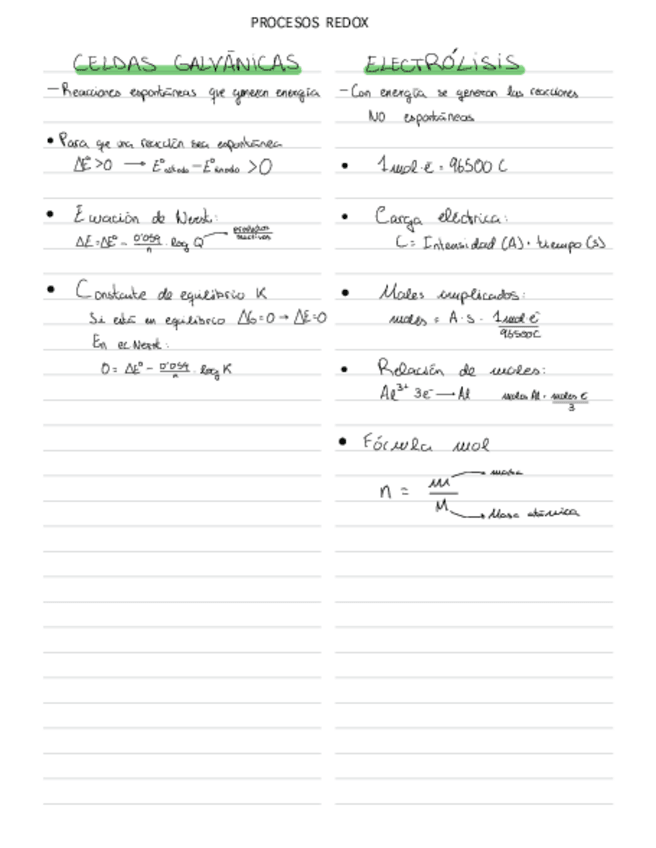 PROCESOS REDOX
CELDAS GALVÁNICAS
- Reacciones espontáneas que generen energía
• Para que una reacción sea espontánea
ΔE°>0 → E°cátodo - E°ánodo >0
• Ecuación de Nerst:
ΔE=ΔE° - 0'059/n · log Q → productos/reactivos
• Constante de equilibrio K
Si está en equilibrio ΔG=0 → ΔE=0
En ec Nerst:
0= ΔE° - 0'059/n · log K
ELECTRÓLISIS
- Con energía se generan las reacciones
NO espontáneas
• 1 mol e⁻ = 96500 C
• Carga eléctrica:
C= Intensidad (A) · tiempo (s)
• Moles implicados:
moles = A · s · 1 mol e⁻/96500C
• Relación de moles:
Al³⁺ 3e⁻ → Al moles Al = moles e⁻/3
• Fórmula mol
n = m/M
→ masa
→ Masa atómica